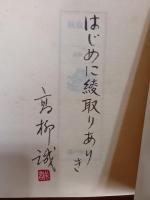 はじめに綾取りありき
高柳誠